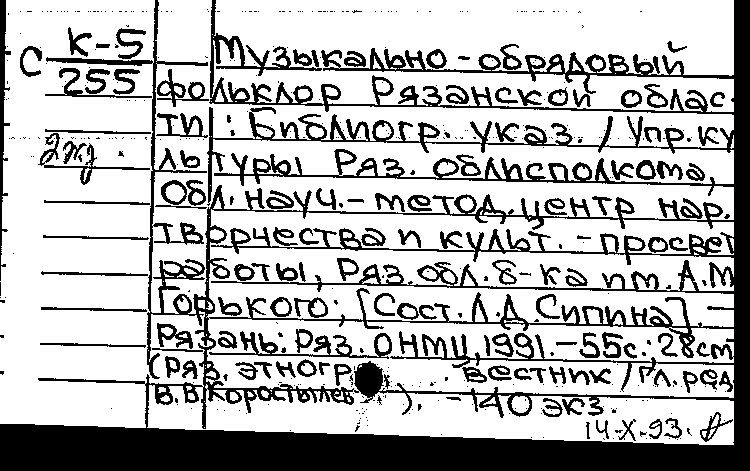 С К-5
255
2жд.
Музыкально-обрядовый
фольклор Рязанской облас-
ти : Библиогр. указ. / Упр. ку
льтуры Ряз. облисполкома,
Обл. науч.-метод. центр нар.
творчества и культ.-просвет
работы, Ряз. обл. б-ка им. А.М
Горького; [Сост. Л.Д. Сипина]. -
Рязань: Ряз. ОНМЦ, 1991. - 55с.; 28cm
(Ряз. этногр. вестник / Гл. ред
В.В. Коростылев ). - 140 экз.
14-X-93.